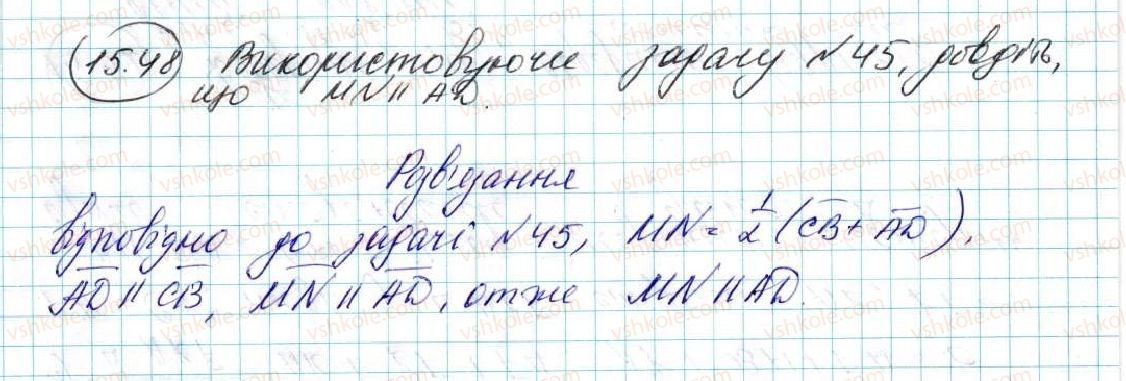 15.48 Використовуючи задачу №45, доведіть,
що MN || AD.
Розв'язання
Відповідно до задачі №45, MN = 1/2 (CB + AD).
AD || CB, MN || AD, отже MN || AD.